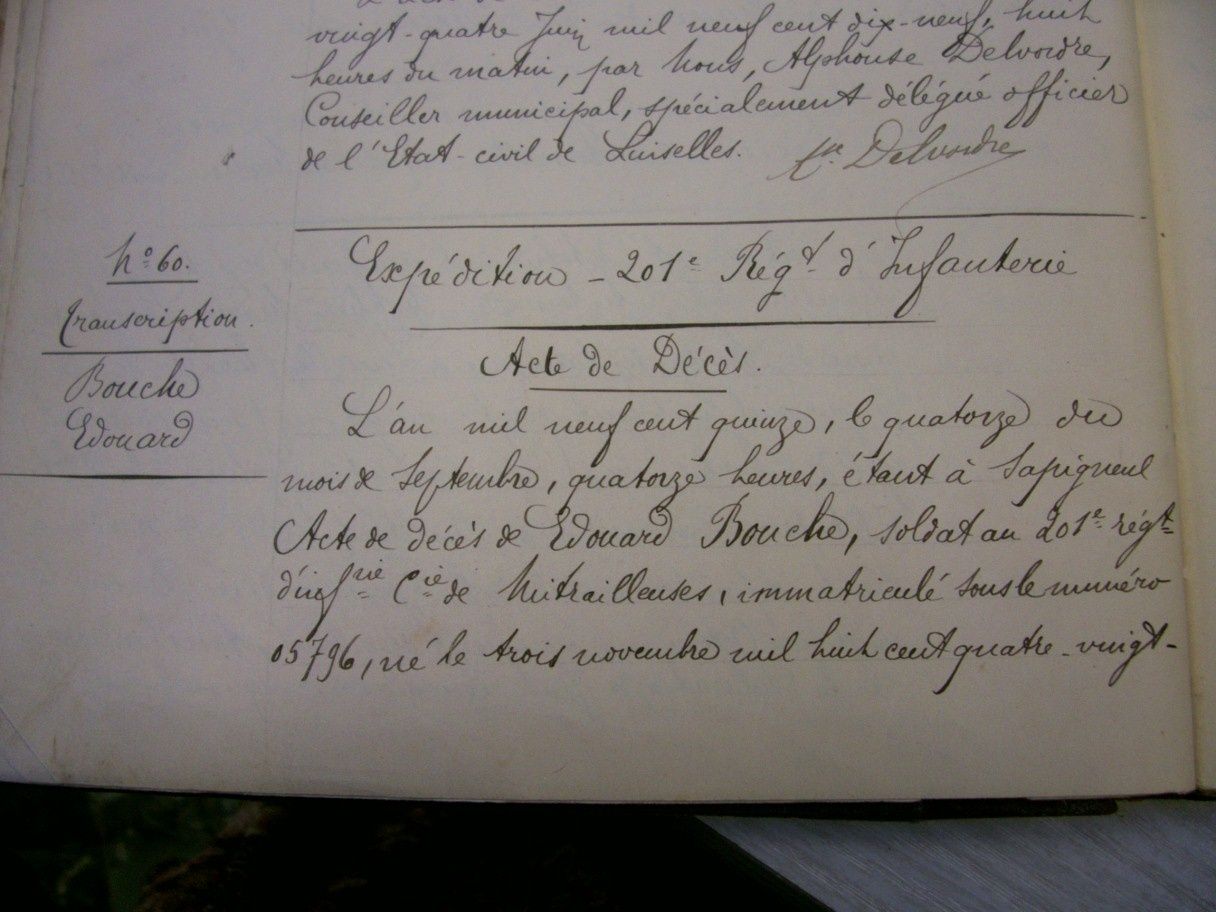 vingt-quatre Juin mil neuf cent dix-neuf, huit
heures du matin, par Nous, Alphonse Delvordre,
Conseiller municipal, spécialement délégué officier
de l'Etat-civil de Linselles. Delvordre
N° 60.
Transcription.
Bouche
Edouard
Expédition - 201e Régt d'Infanterie
Acte de Décès.
L'an mil neuf cent quinze, le quatorze du
mois de Septembre, quatorze heures, étant à Sapigneul
Acte de décès de Edouard Bouche, soldat au 201e régt
d'infrie Cie de Mitrailleuses, immatriculé sous le numéro
05796, né le trois novembre mil huit cent quatre-vingt-